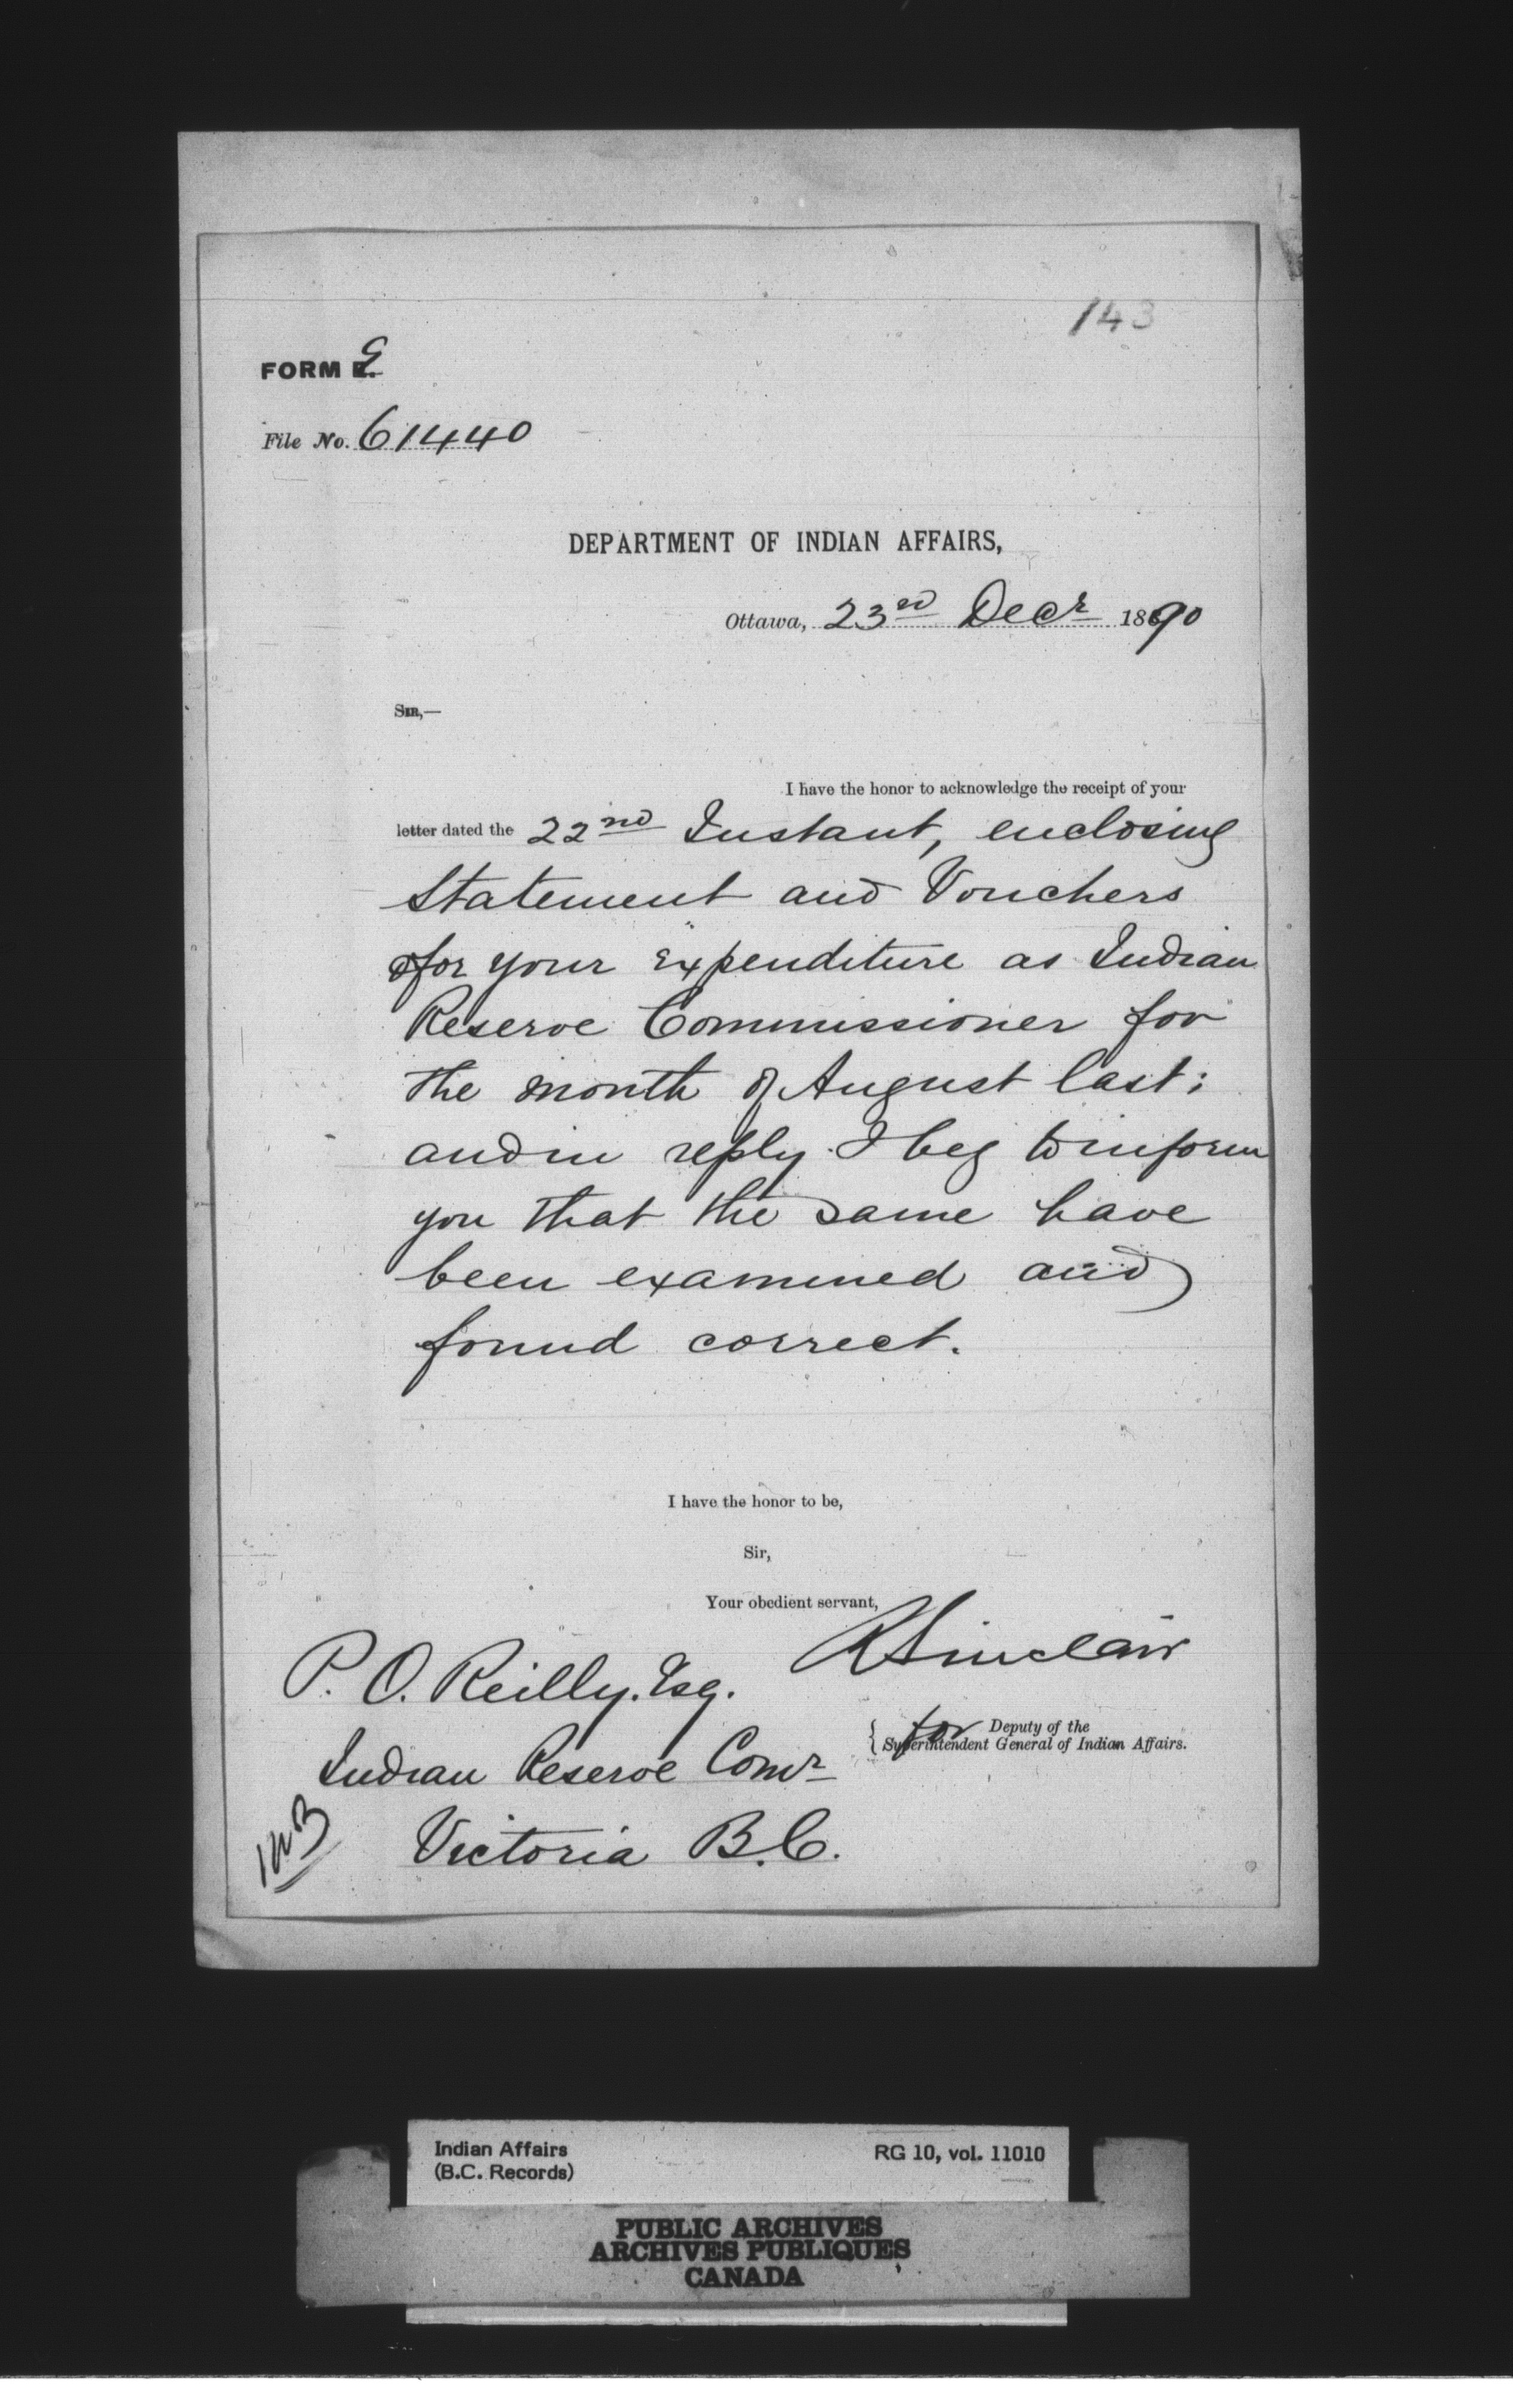 143
FORM E.
File No. 61440
DEPARTMENT OF INDIAN AFFAIRS,
Ottawa, 23rd Decr 1890
SIR,—
I have the honor to acknowledge the receipt of your
letter dated the 22nd Instant, enclosing
Statement and Vouchers
for your Expenditure as Indian
Reserve Commissioner for
the month of August last;
and in reply I beg to inform
you that the same have
been examined and
found correct.
I have the honor to be,
Sir,
Your obedient servant,
R Sinclair
P. O. Reilly. Esq.
for Deputy of the
Superintendent General of Indian Affairs.
Indian Reserve Comr
Victoria B.C.
Indian Affairs
(B.C. Records)
RG 10, vol. 11010
PUBLIC ARCHIVES
ARCHIVES PUBLIQUES
CANADA